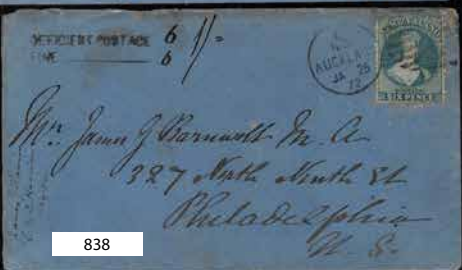 DEFICIENT POSTAGE 6
FINE 6
1/=
AUCKLA
JA 25
72
NEW ZEALAND
SIX PENCE
Mr. James G Barnwell M. A
327 North Ninth St
Philadelphia
U. S.
838